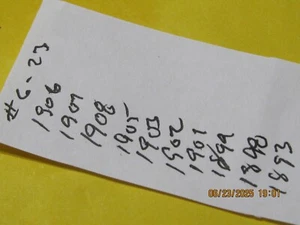 # 6-23
1906
1907
1908
1905
1903
1902
1901
1899
1890
1893
06/23/2025 19:01